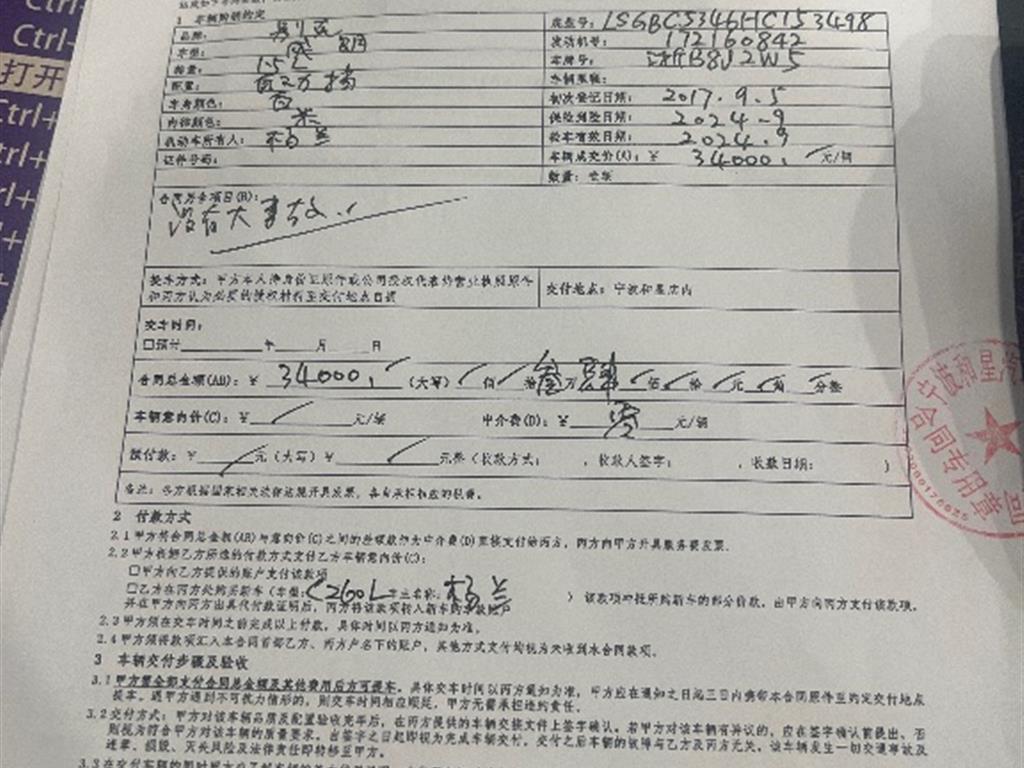 Ctrl+
Ctrl+
打开
Ctrl+
1 车辆购销约定
品牌：
底盘号：LSGBC5346HC153498
车型：
发动机号：172160842
排量：1.5L
车牌号：浙B8J2W5
配置：
车辆里程：
车身颜色：白
初次登记日期：2017.9.5
内饰颜色：米
保险到期日期：2024-9
机动车所有人：杨兰
验车有效日期：2024.9
证件号码：
车辆成交价(A)：¥ 34000. 元/辆
数量：壹辆
合同另含项目(B)：
没有大事故..
提车方式：甲方本人持身份证原件或公司授权代表持营业执照原件
和丙方认为必要的授权材料至交付地点自提
交付地点：宁波和星店内
交车时间：
☐预计 年 月 日
合同总金额(AB)：¥ 34000. (大写) 佰 拾 叁 万 肆 仟 佰 拾 元 角 分整
车辆意向价(C)：¥ 元/辆 中介费(D)：¥ 元/辆
预付款：¥ 元（大写）¥ 元整（收款方式： ，收款人签字： ，收款日期： ）
备注：各方根据国家相关法律法规开具发票，各自承担相应的税费。
宁波和星汽
合同专用章
2 付款方式
2.1 甲方将合同总金额(AB)与意向价(C)之间的差额款作为中介费(D)直接支付给丙方，丙方向甲方开具服务费发票.
2.2 甲方根据乙方所选的付款方式支付乙方车辆意向价(C)：
☐甲方向乙方提供的账户支付该款项
☐乙方在丙方处购买新车（车型：C260L 车主名称：杨兰 ）该款项冲抵所购新车的部分价款，由甲方向丙方支付该款项，
并在甲方向丙方出具代付款证明后，丙方将该款项转入新车购车款账户
2.3 甲方须在交车时间之前完成以上付款，具体时间以丙方通知为准。
2.4 甲方须将款项汇入本合同首部乙方、丙方户名下的账户，其他方式支付均视为未收到本合同款项。
3 车辆交付步骤及验收
3.1 甲方需全部支付合同总金额及其他费用后方可提车。具体交车时间以丙方通知为准，甲方应在通知之日起三日内携带本合同原件至约定交付地点
提车。遇甲方遇到不可抗力情形的，则交车时间相应顺延，甲方无需承担违约责任。
3.2 交付方式：甲方对该车辆品质及配置验收完毕后，在丙方提供的车辆交接文件上签字确认。若甲方对该车辆有异议的，应在签字确认前提出，否
则视为符合甲方对该车辆的质量要求。出签字之日起即视为完成车辆交付，交付之后车辆的故障与乙方及丙方无关，该车辆发生一切交通事故及
违章、损毁、灭失风险及法律责任即转移至甲方。